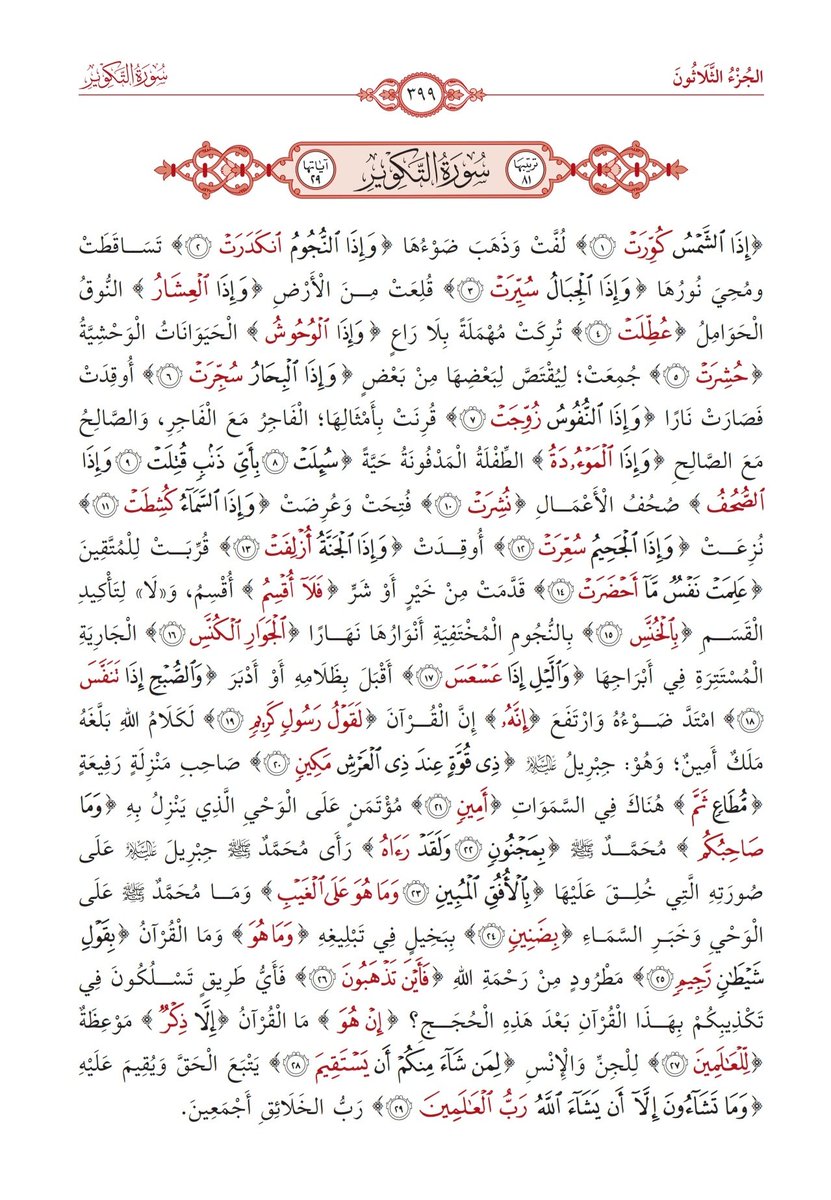 الجُزْءُ الثَّلَاثُونَ
٣٩٩
سُورَةُ التَّكْوِيرِ
ترتيبها ٨١
سُورَةُ التَّكْوِيرِ
آياتها ٢٩
﴿إِذَا ٱلشَّمۡسُ كُوِّرَتۡ ١﴾ لُفَّتْ وَذَهَبَ ضَوْءُهَا ﴿وَإِذَا ٱلنُّجُومُ ٱنكَدَرَتۡ ٢﴾ تَسَاقَطَتْ
ومُحِيَ نُورُهَا ﴿وَإِذَا ٱلۡجِبَالُ سُيِّرَتۡ ٣﴾ قُلِعَتْ مِنَ الْأَرْضِ ﴿وَإِذَا ٱلۡعِشَارُ﴾ النُّوقُ
الْحَوَامِلُ ﴿عُطِّلَتۡ ٤﴾ تُرِكَتْ مُهْمَلَةً بِلَا رَاعٍ ﴿وَإِذَا ٱلۡوُحُوشُ﴾ الْحَيَوَانَاتُ الْوَحْشِيَّةُ
﴿حُشِرَتۡ ٥﴾ جُمِعَتْ؛ لِيُقْتَصَّ لِبَعْضِهَا مِنْ بَعْضٍ ﴿وَإِذَا ٱلۡبِحَارُ سُجِّرَتۡ ٦﴾ أُوقِدَتْ
فَصَارَتْ نَارًا ﴿وَإِذَا ٱلنُّفُوسُ زُوِّجَتۡ ٧﴾ قُرِنَتْ بِأَمْثَالِهَا؛ الْفَاجِرُ مَعَ الْفَاجِرِ، وَالصَّالِحُ
مَعَ الصَّالِحِ ﴿وَإِذَا ٱلۡمَوۡءُۥدَةُ﴾ الطِّفْلَةُ الْمَدْفُونَةُ حَيَّةً ﴿سُئِلَتۡ ٨ بِأَيِّ ذَنۢبٖ قُتِلَتۡ ٩ وَإِذَا
ٱلصُّحُفُ﴾ صُحُفُ الْأَعْمَالِ ﴿نُشِرَتۡ ١٠﴾ فُتِحَتْ وَعُرِضَتْ ﴿وَإِذَا ٱلسَّمَآءُ كُشِطَتۡ ١١﴾
نُزِعَتْ ﴿وَإِذَا ٱلۡجَحِيمُ سُعِّرَتۡ ١٢﴾ أُوقِدَتْ ﴿وَإِذَا ٱلۡجَنَّةُ أُزۡلِفَتۡ ١٣﴾ قُرِّبَتْ لِلْمُتَّقِينَ
﴿عَلِمَتۡ نَفۡسٞ مَّآ أَحۡضَرَتۡ ١٤﴾ قَدَّمَتْ مِنْ خَيْرٍ أَوْ شَرٍّ ﴿فَلَآ أُقۡسِمُ﴾ أُقْسِمُ، وَ«لَا» لِتَأْكِيدِ
الْقَسَمِ ﴿بِٱلۡخُنَّسِ ١٥﴾ بِالنُّجُومِ الْمُخْتَفِيَةِ أَنْوَارُهَا نَهَارًا ﴿ٱلۡجَوَارِ ٱلۡكُنَّسِ ١٦﴾ الْجَارِيَةِ
الْمُسْتَتِرَةِ فِي أَبْرَاجِهَا ﴿وَٱلَّيۡلِ إِذَا عَسۡعَسَ ١٧﴾ أَقْبَلَ بِظَلَامِهِ أَوْ أَدْبَرَ ﴿وَٱلصُّبۡحِ إِذَا تَنَفَّسَ
١٨﴾ امْتَدَّ ضَوْءُهُ وَارْتَفَعَ ﴿إِنَّهُۥ﴾ إِنَّ الْقُرْآنَ ﴿لَقَوۡلُ رَسُولٖ كَرِيمٖ ١٩﴾ لَكَلَامُ اللهِ بَلَّغَهُ
مَلَكٌ أَمِينٌ؛ وَهُوَ: جِبْرِيلُ عَلَيْهِ السَّلَامُ ﴿ذِي قُوَّةٍ عِندَ ذِي ٱلۡعَرۡشِ مَكِينٖ ٢٠﴾ صَاحِبِ مَنْزِلَةٍ رَفِيعَةٍ
﴿مُّطَاعٖ ثَمَّ﴾ هُنَاكَ فِي السَّمَوَاتِ ﴿أَمِينٖ ٢١﴾ مُؤْتَمَنٍ عَلَى الْوَحْيِ الَّذِي يَنْزِلُ بِهِ ﴿وَمَا
صَاحِبُكُم﴾ مُحَمَّدٌ ﷺ ﴿بِمَجۡنُونٖ ٢٢ وَلَقَدۡ رَءَاهُ﴾ رَأَى مُحَمَّدٌ ﷺ جِبْرِيلَ عَلَيْهِ السَّلَامُ عَلَى
صُورَتِهِ الَّتِي خُلِقَ عَلَيْهَا ﴿بِٱلۡأُفُقِ ٱلۡمُبِينِ ٢٣ وَمَا هُوَ عَلَى ٱلۡغَيۡبِ﴾ وَمَا مُحَمَّدٌ ﷺ عَلَى
الْوَحْيِ وَخَبَرِ السَّمَاءِ ﴿بِضَنِينٖ ٢٤﴾ بِبَخِيلٍ فِي تَبْلِيغِهِ ﴿وَمَا هُوَ﴾ وَمَا الْقُرْآنُ ﴿بِقَوۡلِ
شَيۡطَٰنٖ رَّجِيمٖ ٢٥﴾ مَطْرُودٍ مِنْ رَحْمَةِ اللهِ ﴿فَأَيۡنَ تَذۡهَبُونَ ٢٦﴾ فَأَيُّ طَرِيقٍ تَسْلُكُونَ فِي
تَكْذِيبِكُمْ بِهَذَا الْقُرْآنِ بَعْدَ هَذِهِ الْحُجَجِ؟ ﴿إِنۡ هُوَ﴾ مَا الْقُرْآنُ ﴿إِلَّا ذِكۡرٞ﴾ مَوْعِظَةٌ
﴿لِّلۡعَٰلَمِينَ ٢٧﴾ لِلْجِنِّ وَالْإِنْسِ ﴿لِمَن شَآءَ مِنكُمۡ أَن يَسۡتَقِيمَ ٢٨﴾ يَتْبَعَ الْحَقَّ وَيُقِيمَ عَلَيْهِ
﴿وَمَا تَشَآءُونَ إِلَّآ أَن يَشَآءَ ٱللَّهُ رَبُّ ٱلۡعَٰلَمِينَ ٢٩﴾ رَبُّ الخَلَائِقِ أَجْمَعِينَ.